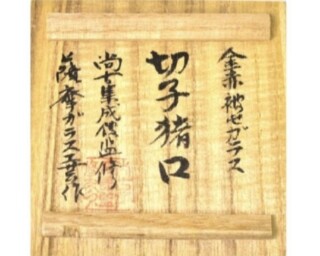 金赤被せガラス
切子猪口
尚古集成館監修
薩摩ガラス工芸作